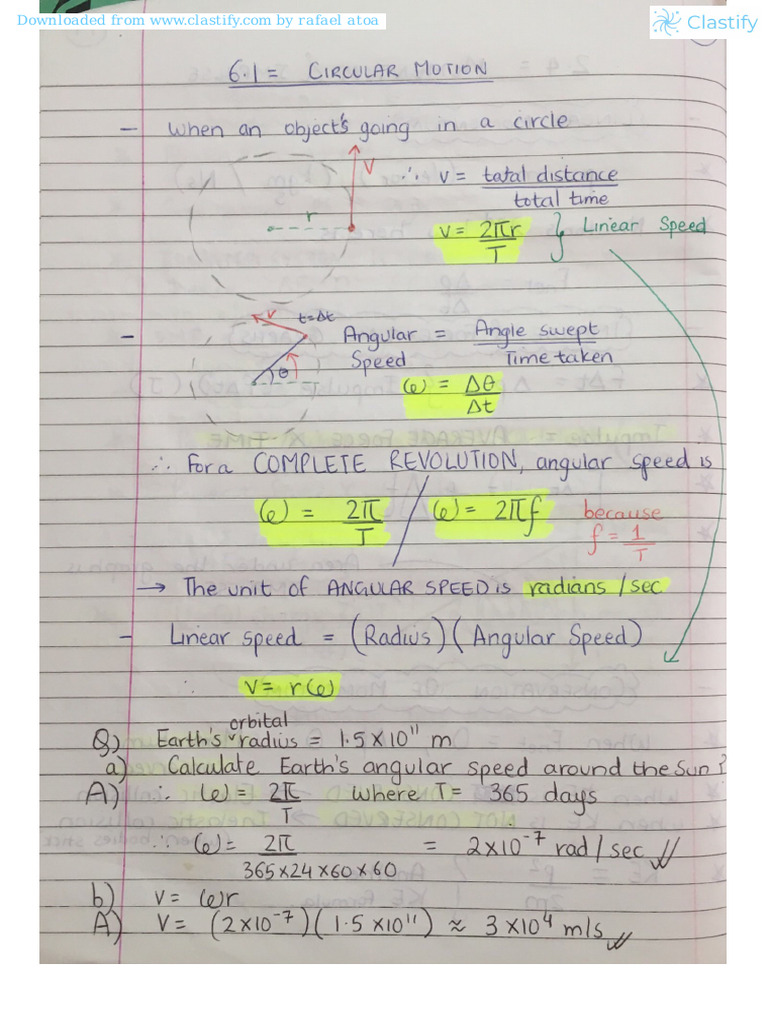 Downloaded from www.clastify.com by rafael atoa
Clastify
6.1 = CIRCULAR MOTION
- When an object's going in a circle
V
r
∴ v = tatal distance / total time
v = 2πr / T } Linear Speed
V t=Δt
θ
- Angular Speed = Angle swept / Time taken
ω = Δθ / Δt
∴ For a COMPLETE REVOLUTION, angular speed is
ω = 2π / T / ω = 2πf because f = 1 / T
→ The unit of ANGULAR SPEED is radians / sec
- Linear speed = (Radius) (Angular Speed)
∴ v = rω
Q) Earth's orbital radius = 1.5 × 10¹¹ m
a) Calculate Earth's angular speed around the Sun?
A) ∴ ω = 2π / T where T = 365 days
∴ ω = 2π / 365×24×60×60 = 2×10⁻⁷ rad / sec
b) v = ωr
A) v = (2×10⁻⁷) (1.5 ×10¹¹) ≈ 3 ×10⁴ m/s